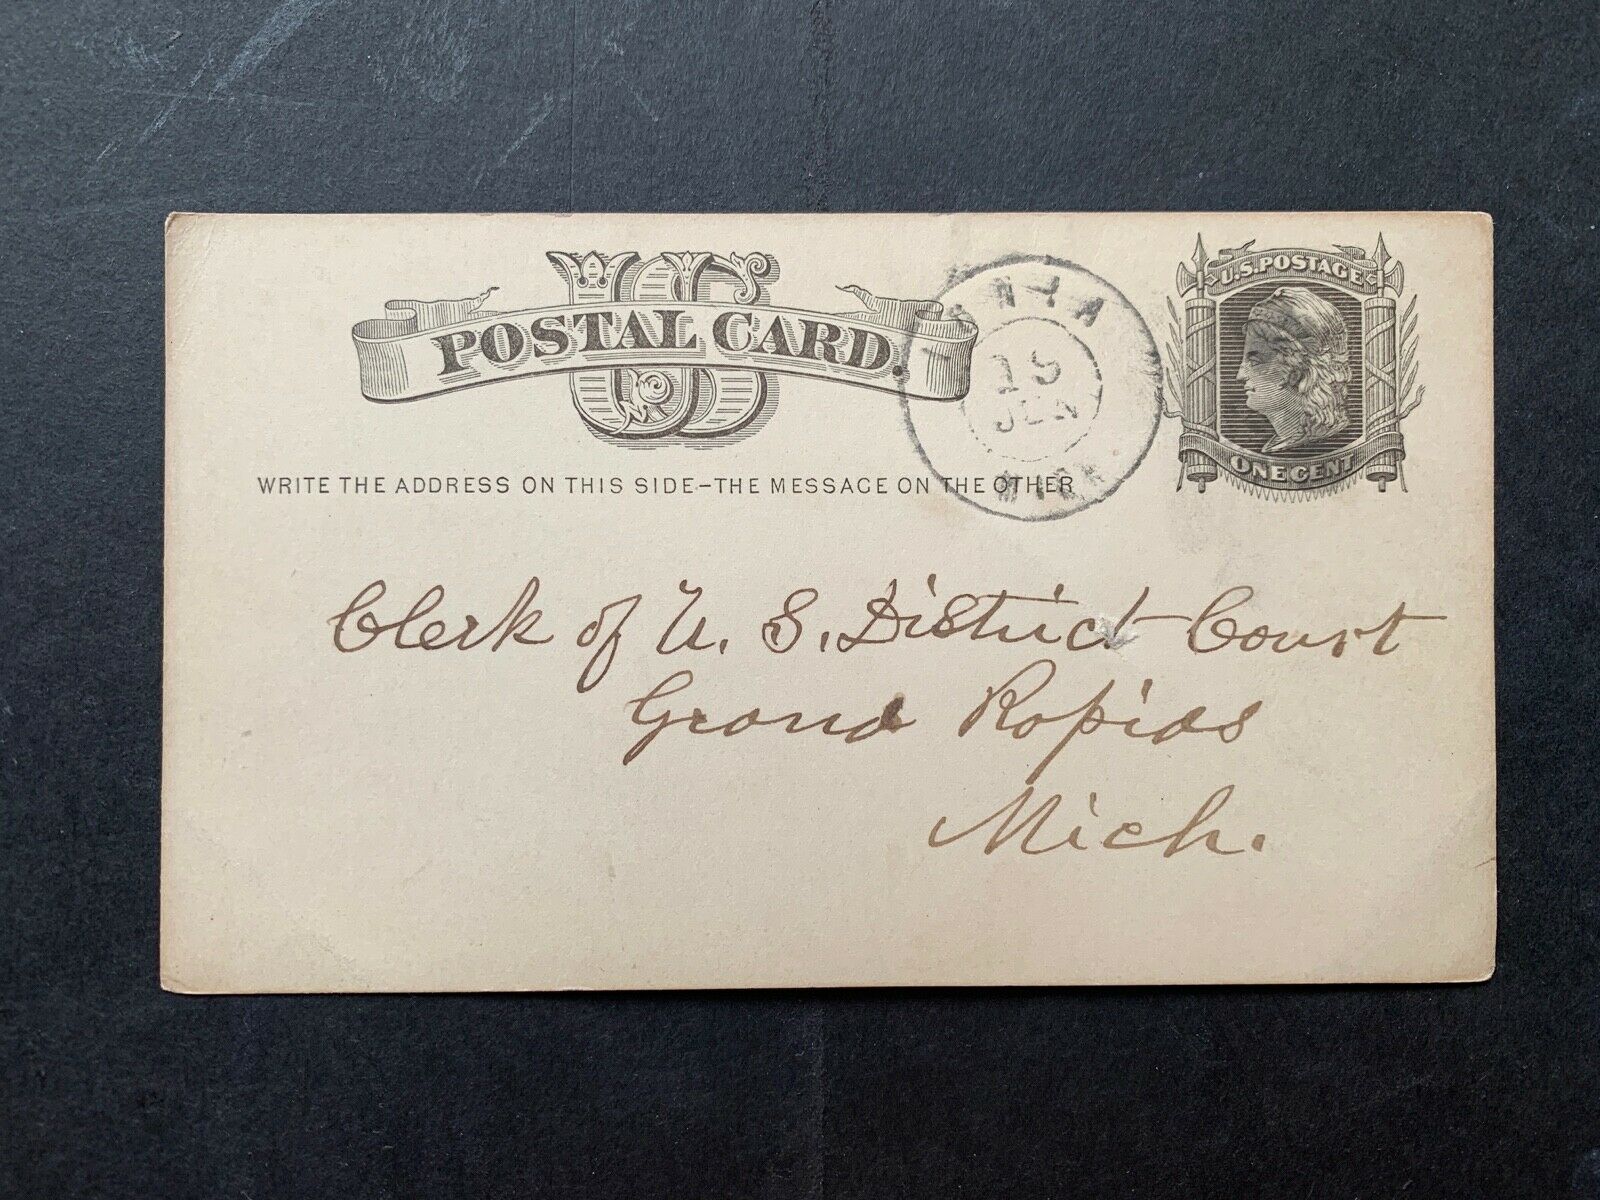 US
POSTAL CARD.
U.S. POSTAGE
ONE CENT
WRITE THE ADDRESS ON THIS SIDE-THE MESSAGE ON THE OTHER
MICH
Clerk of U. S. District Court
Grand Rapids
Mich.